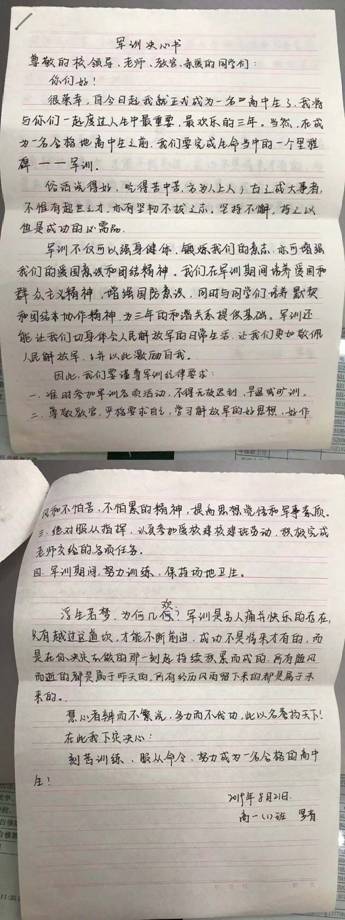 军训决心书
尊敬的校领导、老师、教官、亲爱的同学们：
你们好！
很荣幸，自今日起我就正式成为一名高中生了，我将
与你们一起度过人生中最重要、最欢乐的三年。当然，在成
为一名合格地高中生之前，我们要完成生命当中的一个里程
碑——军训。
俗话说得好，吃得苦中苦，方为人上人；古之成大事者，
不惟有超世之才，亦有坚韧不拔之志。坚持不懈，持之以
也是成功的必需品。
军训不仅可以强身健体，锻炼我们的意志，亦可增强
我们的爱国意识和团结精神。我们在军训期间培养爱国和
群众主义精神，增强国防意识，同时与同学们培养默契
和团结协作精神，为三年的和谐关系提供基础。军训还
能让我们切身体会人民解放军的日常生活，让我们更加敬佩
人民解放军，并以此激励自我。
因此，我们要谨尊军训纪律要求：
一、准时参加军训各项活动，不得无故迟到、早退或旷训。
二、尊敬教官，严格要求自己，学习解放军的好思想、好作
风和不怕苦、不怕累的精神，提高思想觉悟和军事素质。
三、绝对服从指挥，认真参加医校建校建班劳动，积极完成
老师交给的各项任务。
四、军训期间，努力训练，保持场地卫生。
浮生若梦，为欢几何？军训是与人痛并快乐的存在，
只有越过这道坎，才能不断前进。成功不是将来才有的，而
是在你决定去做的那一刻起，持续积累而成的，所有随风
而逝的都是属于昨天的，所有经历风雨留下来的都是属于未
来的。
慧心者辨而不繁说，多力而不伐功，此以名誉扬天下！
在此我下定决心：
刻苦训练、服从命令，努力成为一名合格的高中
生！
2019年8月21日
高一（1）班